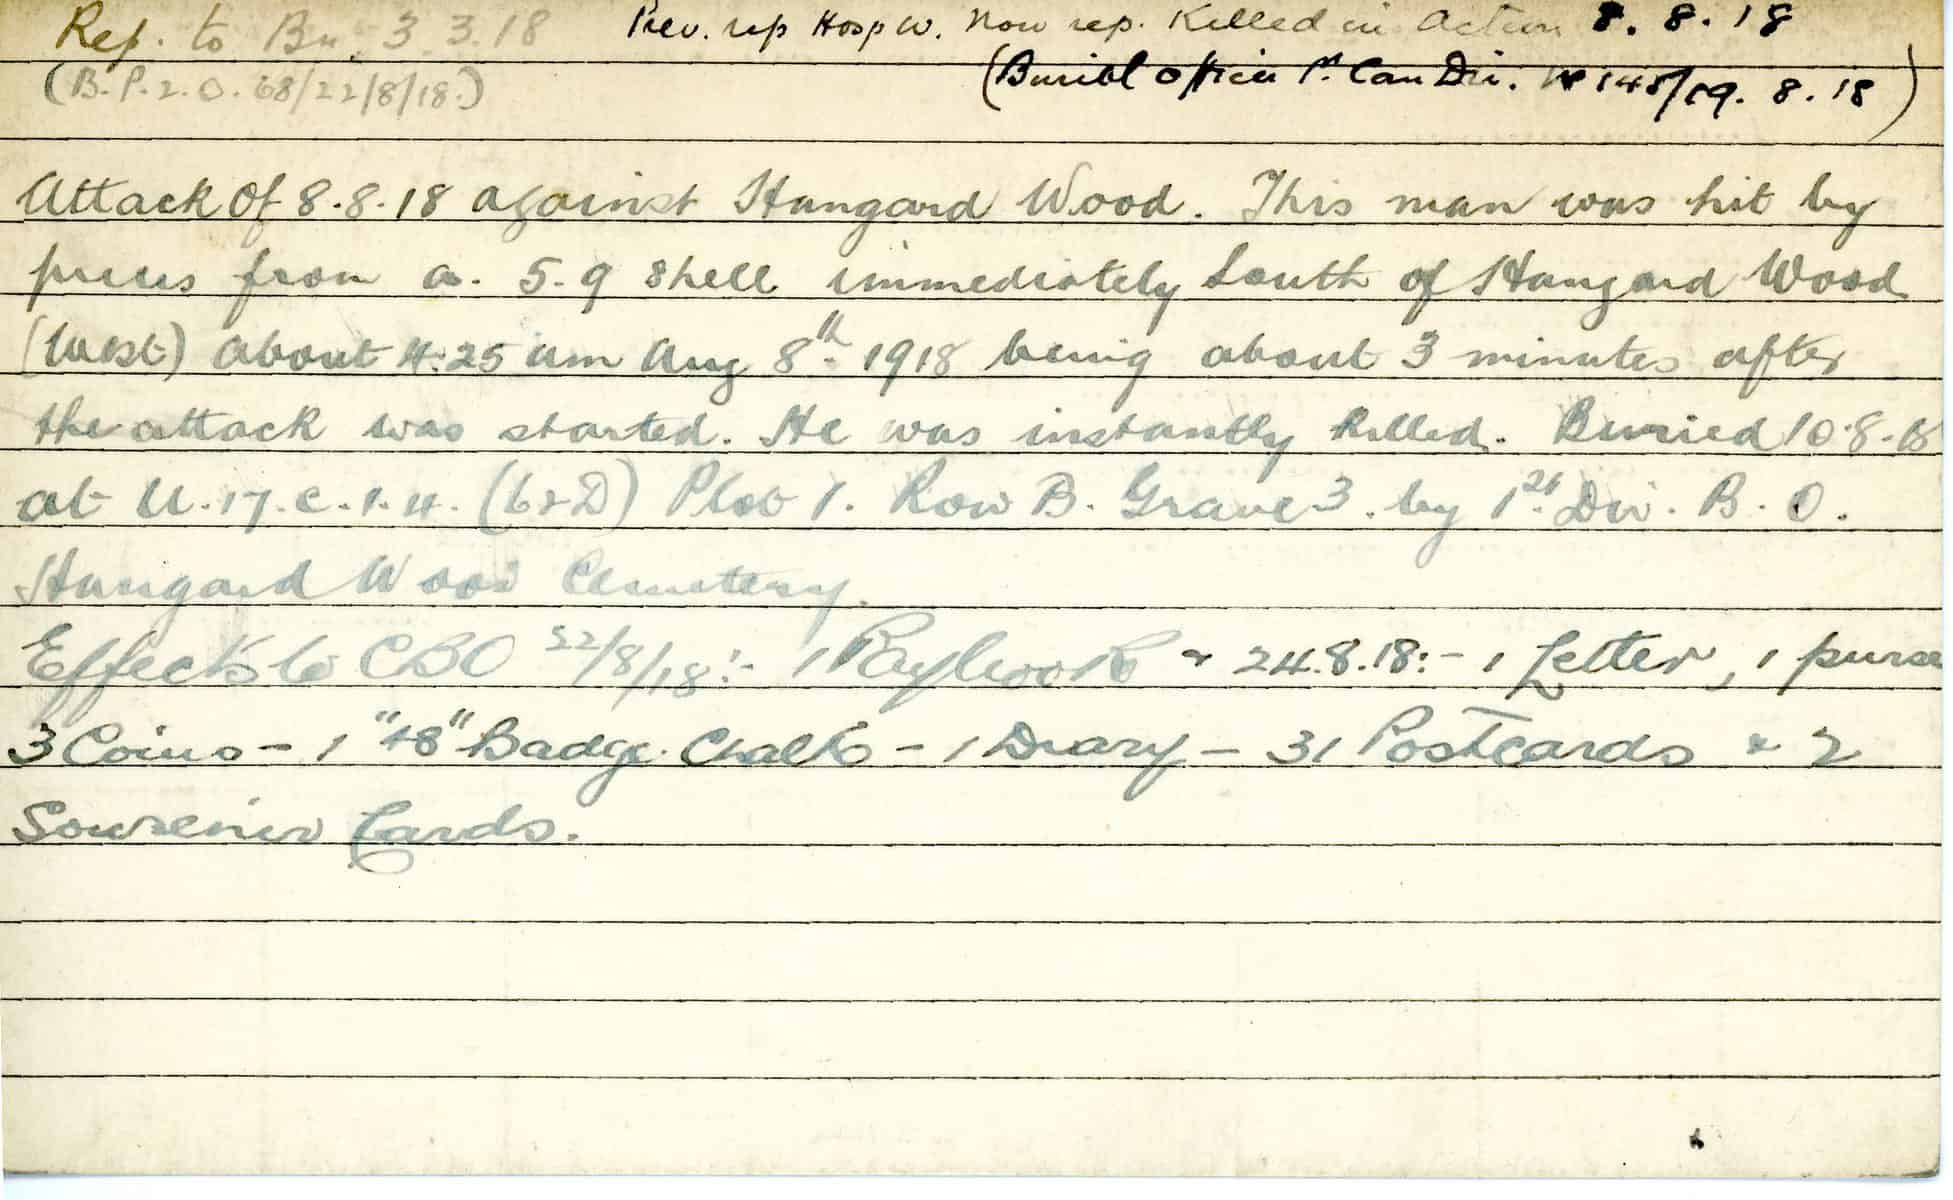 Rep. to Bn. 3.3.18 Prev. rep Hosp W. Now rep. Killed in Action 8.8.18
(B.P.2.O. 68/22/8/18.) (Burial Officer 1st Can Div. 148/19.8.18)
Attack Of 8.8.18 against Hangard Wood. This man was hit by
pieces from a. 5.9 shell immediately South of Hangard Wood
(West) about 4.25 am Aug 8th. 1918 being about 3 minutes after
the attack was started. He was instantly killed. Buried 10.8.18
at U.17.c.1.4. (62D) Plot 1. Row B. Grave 3. by 1st Div. B.O.
Hangard Wood Cemetery.
Effects to CBO 22/8/18:- 1 Paybook & 24.8.18:- 1 Letter, 1 purse
3 Coins - 1 "48" Badge. - 1 Diary - 31 Postcards & 2
Souvenir Cards.